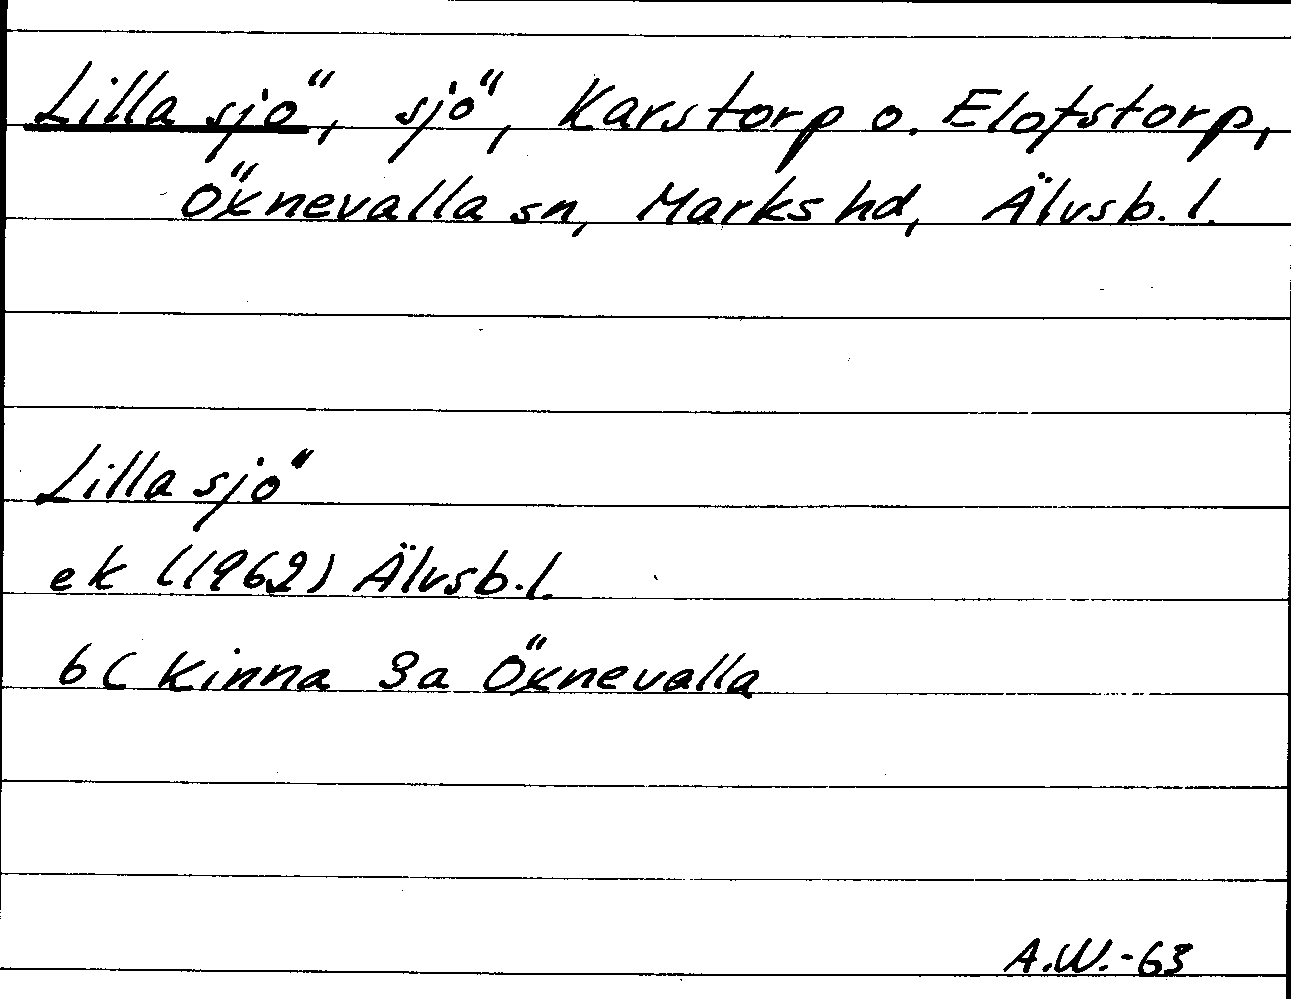 Lilla sjö, sjö, Karstorp o. Elofstorp,
Öxnevalla sn, Marks hd, Älvsb. l.
Lilla sjö
ek (1962) Älvsb. l.
6C Kinna 3a Öxnevalla
A.W.-63